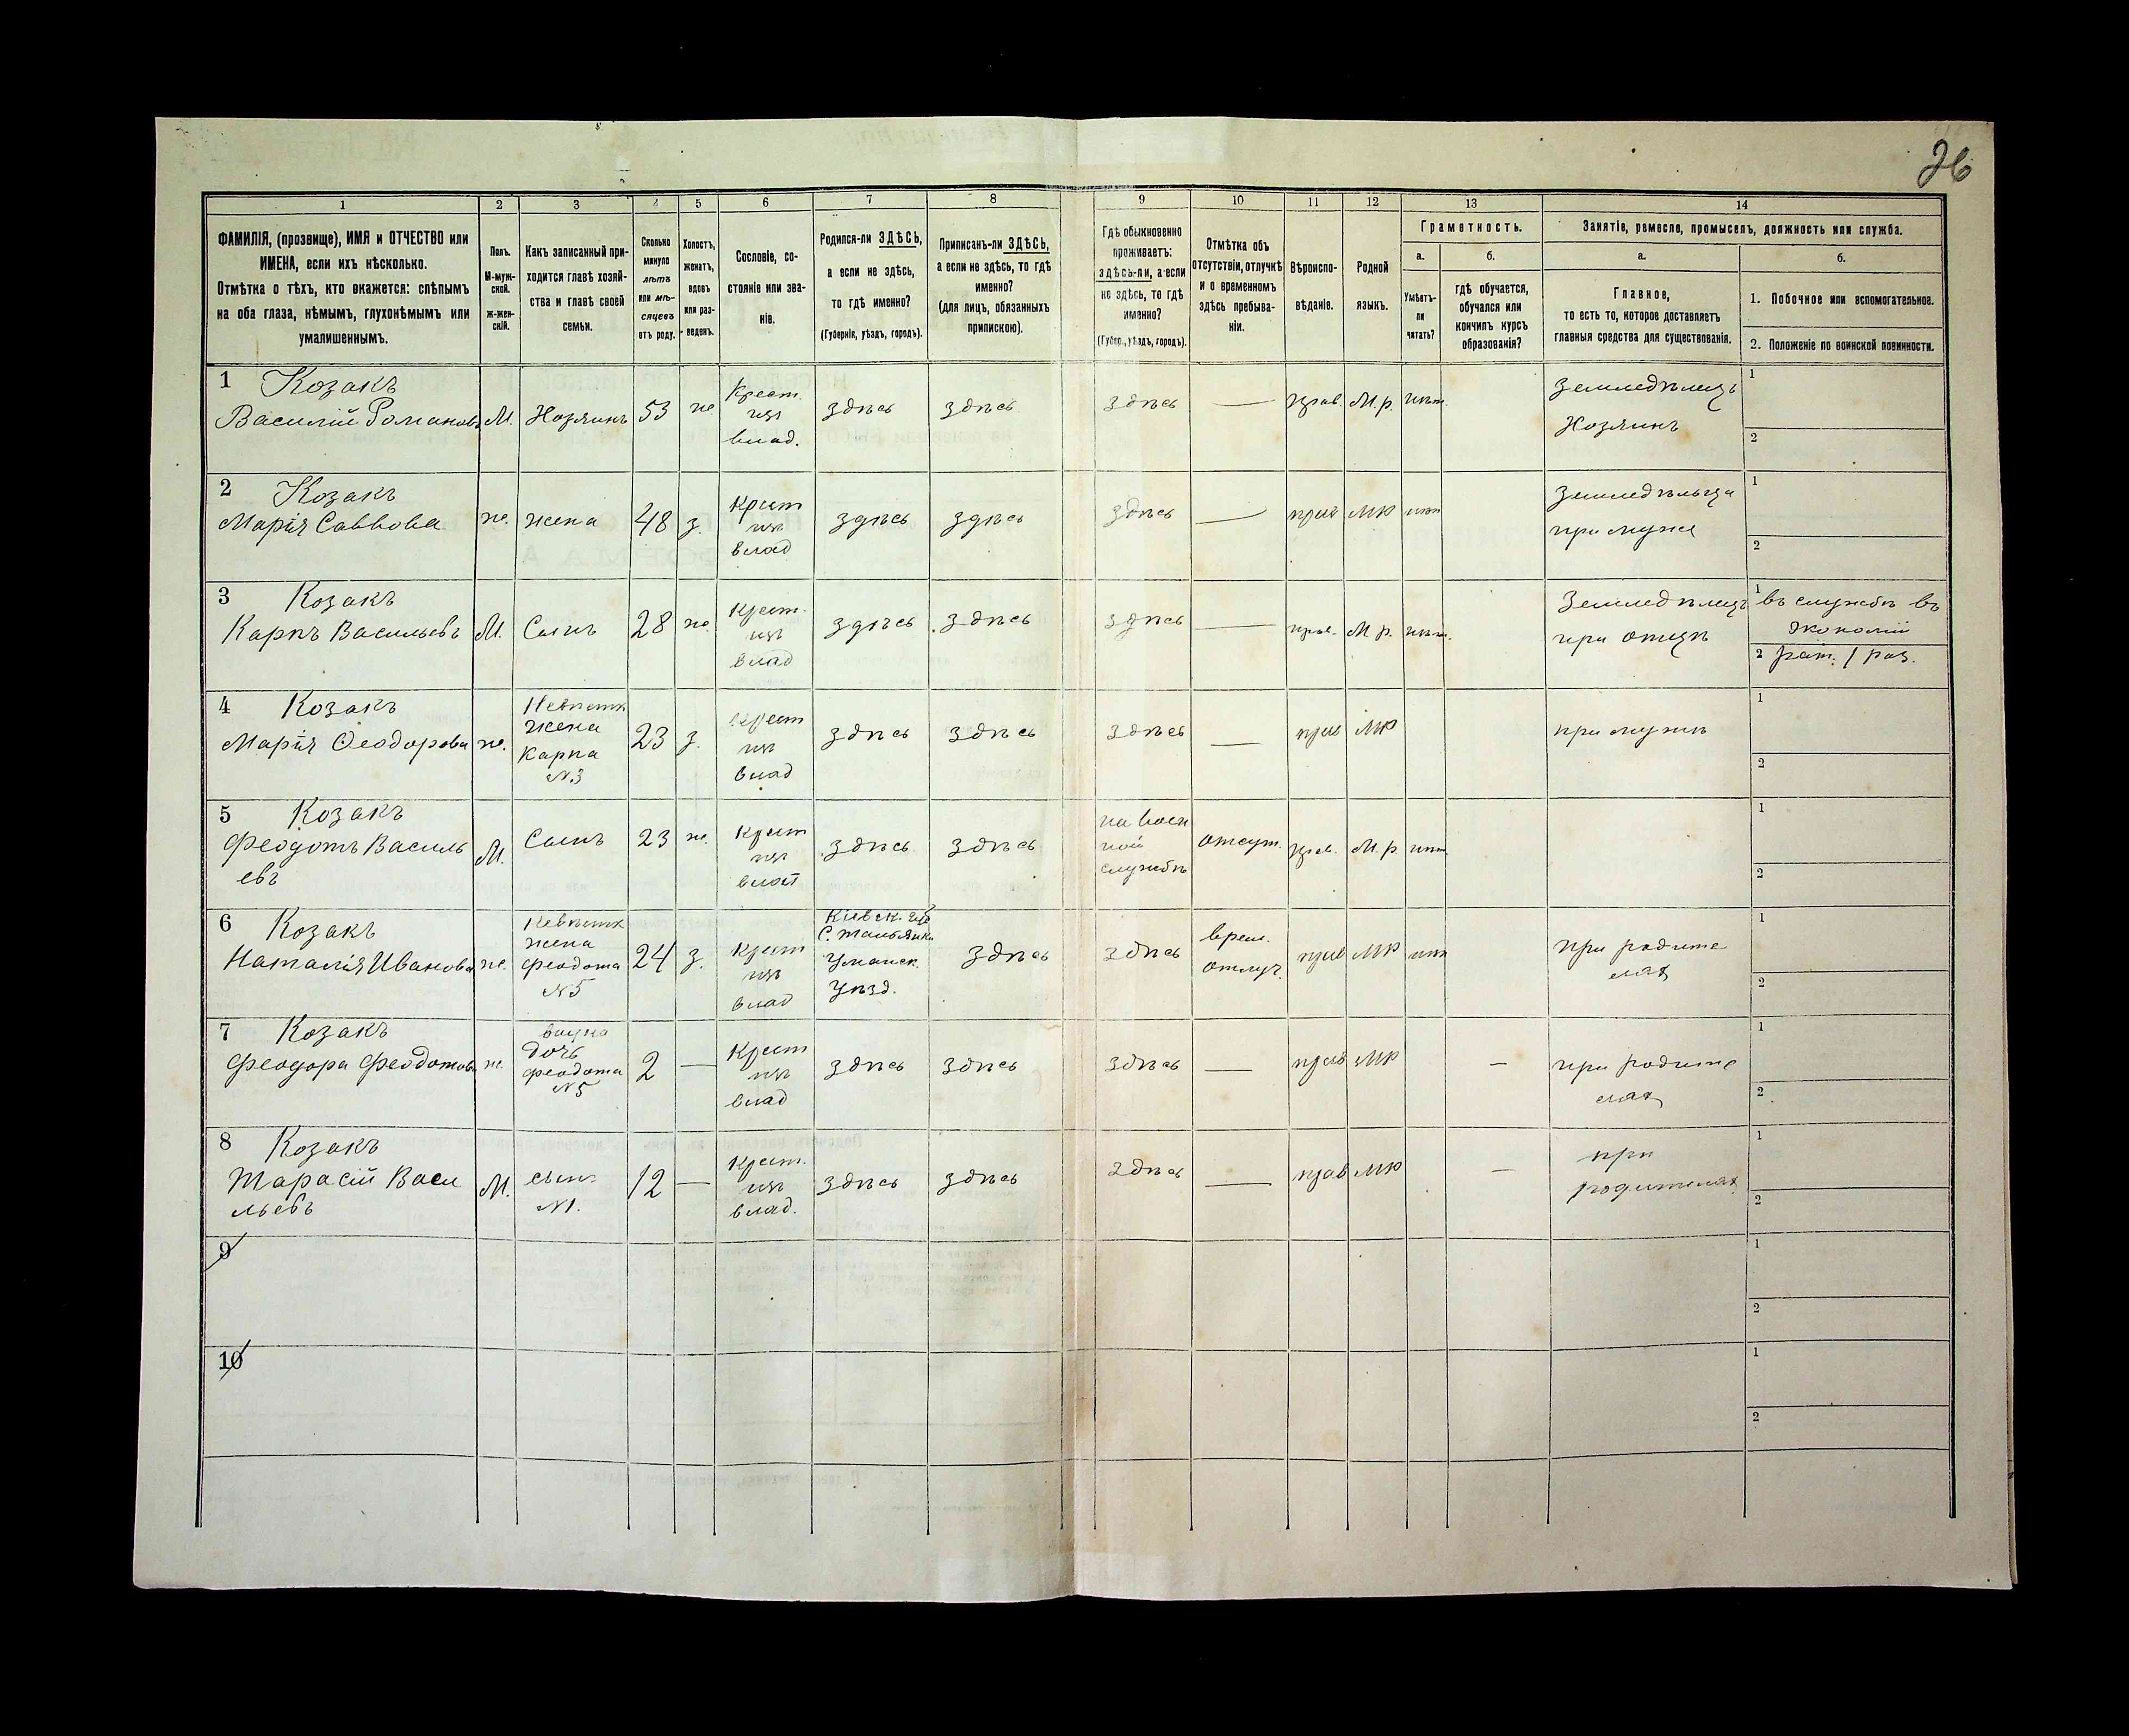 26
1 2 3 4 5 6 7 8 9 10 11 12 13 14
ФАМИЛІЯ, (прозвище), ИМЯ и ОТЧЕСТВО или
ИМЕНА, если ихъ нѣсколько.
Отмѣтка о тѣхъ, кто окажется: слѣпымъ
на оба глаза, нѣмымъ, глухонѣмымъ или
умалишеннымъ.
Полъ.
М-муж-
ской.
ж-жен-
скій.
Какъ записанный при-
ходится главѣ хозяй-
ства и главѣ своей
семьи.
Сколько
минуло
лѣтъ
или мѣ-
сяцевъ
отъ роду.
Холостъ,
женатъ,
вдовъ
или раз-
веденъ.
Сословіе, со-
стояніе или зва-
ніе.
Родился-ли ЗДѢСЬ,
а если не здѣсь,
то гдѣ именно?
(Губернія, уѣздъ, городъ).
Приписанъ-ли ЗДѢСЬ,
а если не здѣсь, то гдѣ
именно?
(для лицъ, обязанныхъ
припискою).
Гдѣ обыкновенно
проживаетъ:
здѣсь-ли, а если
не здѣсь, то гдѣ
именно?
(Губер., уѣздъ, городъ).
Отмѣтка объ
отсутствіи, отлучкѣ
и о временномъ
здѣсь пребыва-
ніи.
Вѣроиспо-
вѣданіе.
Родной
языкъ.
Грамотность.
а.
Умѣетъ-
ли
читать?
б.
гдѣ обучается,
обучался или
кончилъ курсъ
образованія?
Занятіе, ремесло, промыселъ, должность или служба.
а.
Главное,
то есть то, которое доставляетъ
главныя средства для существованія.
б.
1. Побочное или вспомогательное.
2. Положеніе по воинской повинности.
1 Козакъ
Василій Романовъ
М.
Хозяинъ
53
же
Крест.
изъ
влад.
здѣсь
здѣсь
здѣсь
—
прав.
М. р.
нѣт.
Земледѣлецъ
Хозяинъ
1
2
2 Козакъ
Марія Саввова
же.
жена
48
з.
Крест
изъ
влад
здѣсь
здѣсь
здѣсь
—
прав
МР
нѣт
Земледѣльца
при муже
1
2
3 Козакъ
Карпъ Васильевъ
М.
Сынъ
28
же.
Крест.
изъ
влад
здѣсь
здѣсь
здѣсь
—
прав.
М р.
нѣт.
Земледѣлецъ
при отцѣ
1 въ службѣ въ
экономіи
2 рат. 1 раз.
4 Козакъ
Марія Ѳеодорова
же.
Невѣстк
жена
Карпа
№3
23
з.
Крест
изъ
влад
здѣсь
здѣсь
здѣсь
—
прав
МР
при мужѣ
1
2
5 Козакъ
Феодотъ Василь
евъ
М.
Сынъ
23
же.
Крест
изъ
влад
здѣсь
здѣсь
на воен
ной
службѣ
отсут.
прав.
М. р.
нѣт
1
2
6 Козакъ
Наталія Иванова
же.
Невѣстк
жена
Феодота
№5
24
з.
Крест
изъ
влад
Кіевск. губ
С. Тальянки
Уманск.
Уѣзд.
здѣсь
здѣсь
врем.
отлуч.
прав
МР
нѣт
при родите
лях
1
2
7 Козакъ
Феодора Феодотова
же.
внука
дочь
Феодота
№5
2
—
Крест
изъ
влад
здѣсь
здѣсь
здѣсь
—
прав
МР
—
при родите
лях
1
2
8 Козакъ
Тарасій Васи
льевъ
М.
сынъ
№1.
12
—
Крест.
изъ
влад.
здѣсь
здѣсь
здѣсь
—
прав
МР
—
при
родителях
1
2
9
1
2
10
1
2